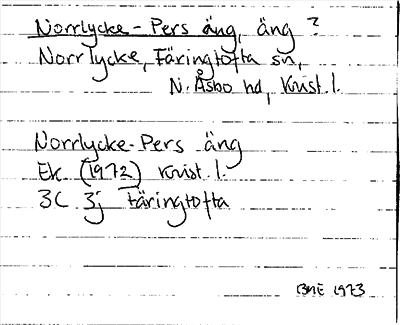 Norrlycke-Pers äng, äng ?
Norrlycke, Färingtofta sn,
N. Åsbo hd, Krist. l.
Norrlycke-Pers äng
Ek. (1972) Krist. l.
3C 3j Färingtofta
BME 1973